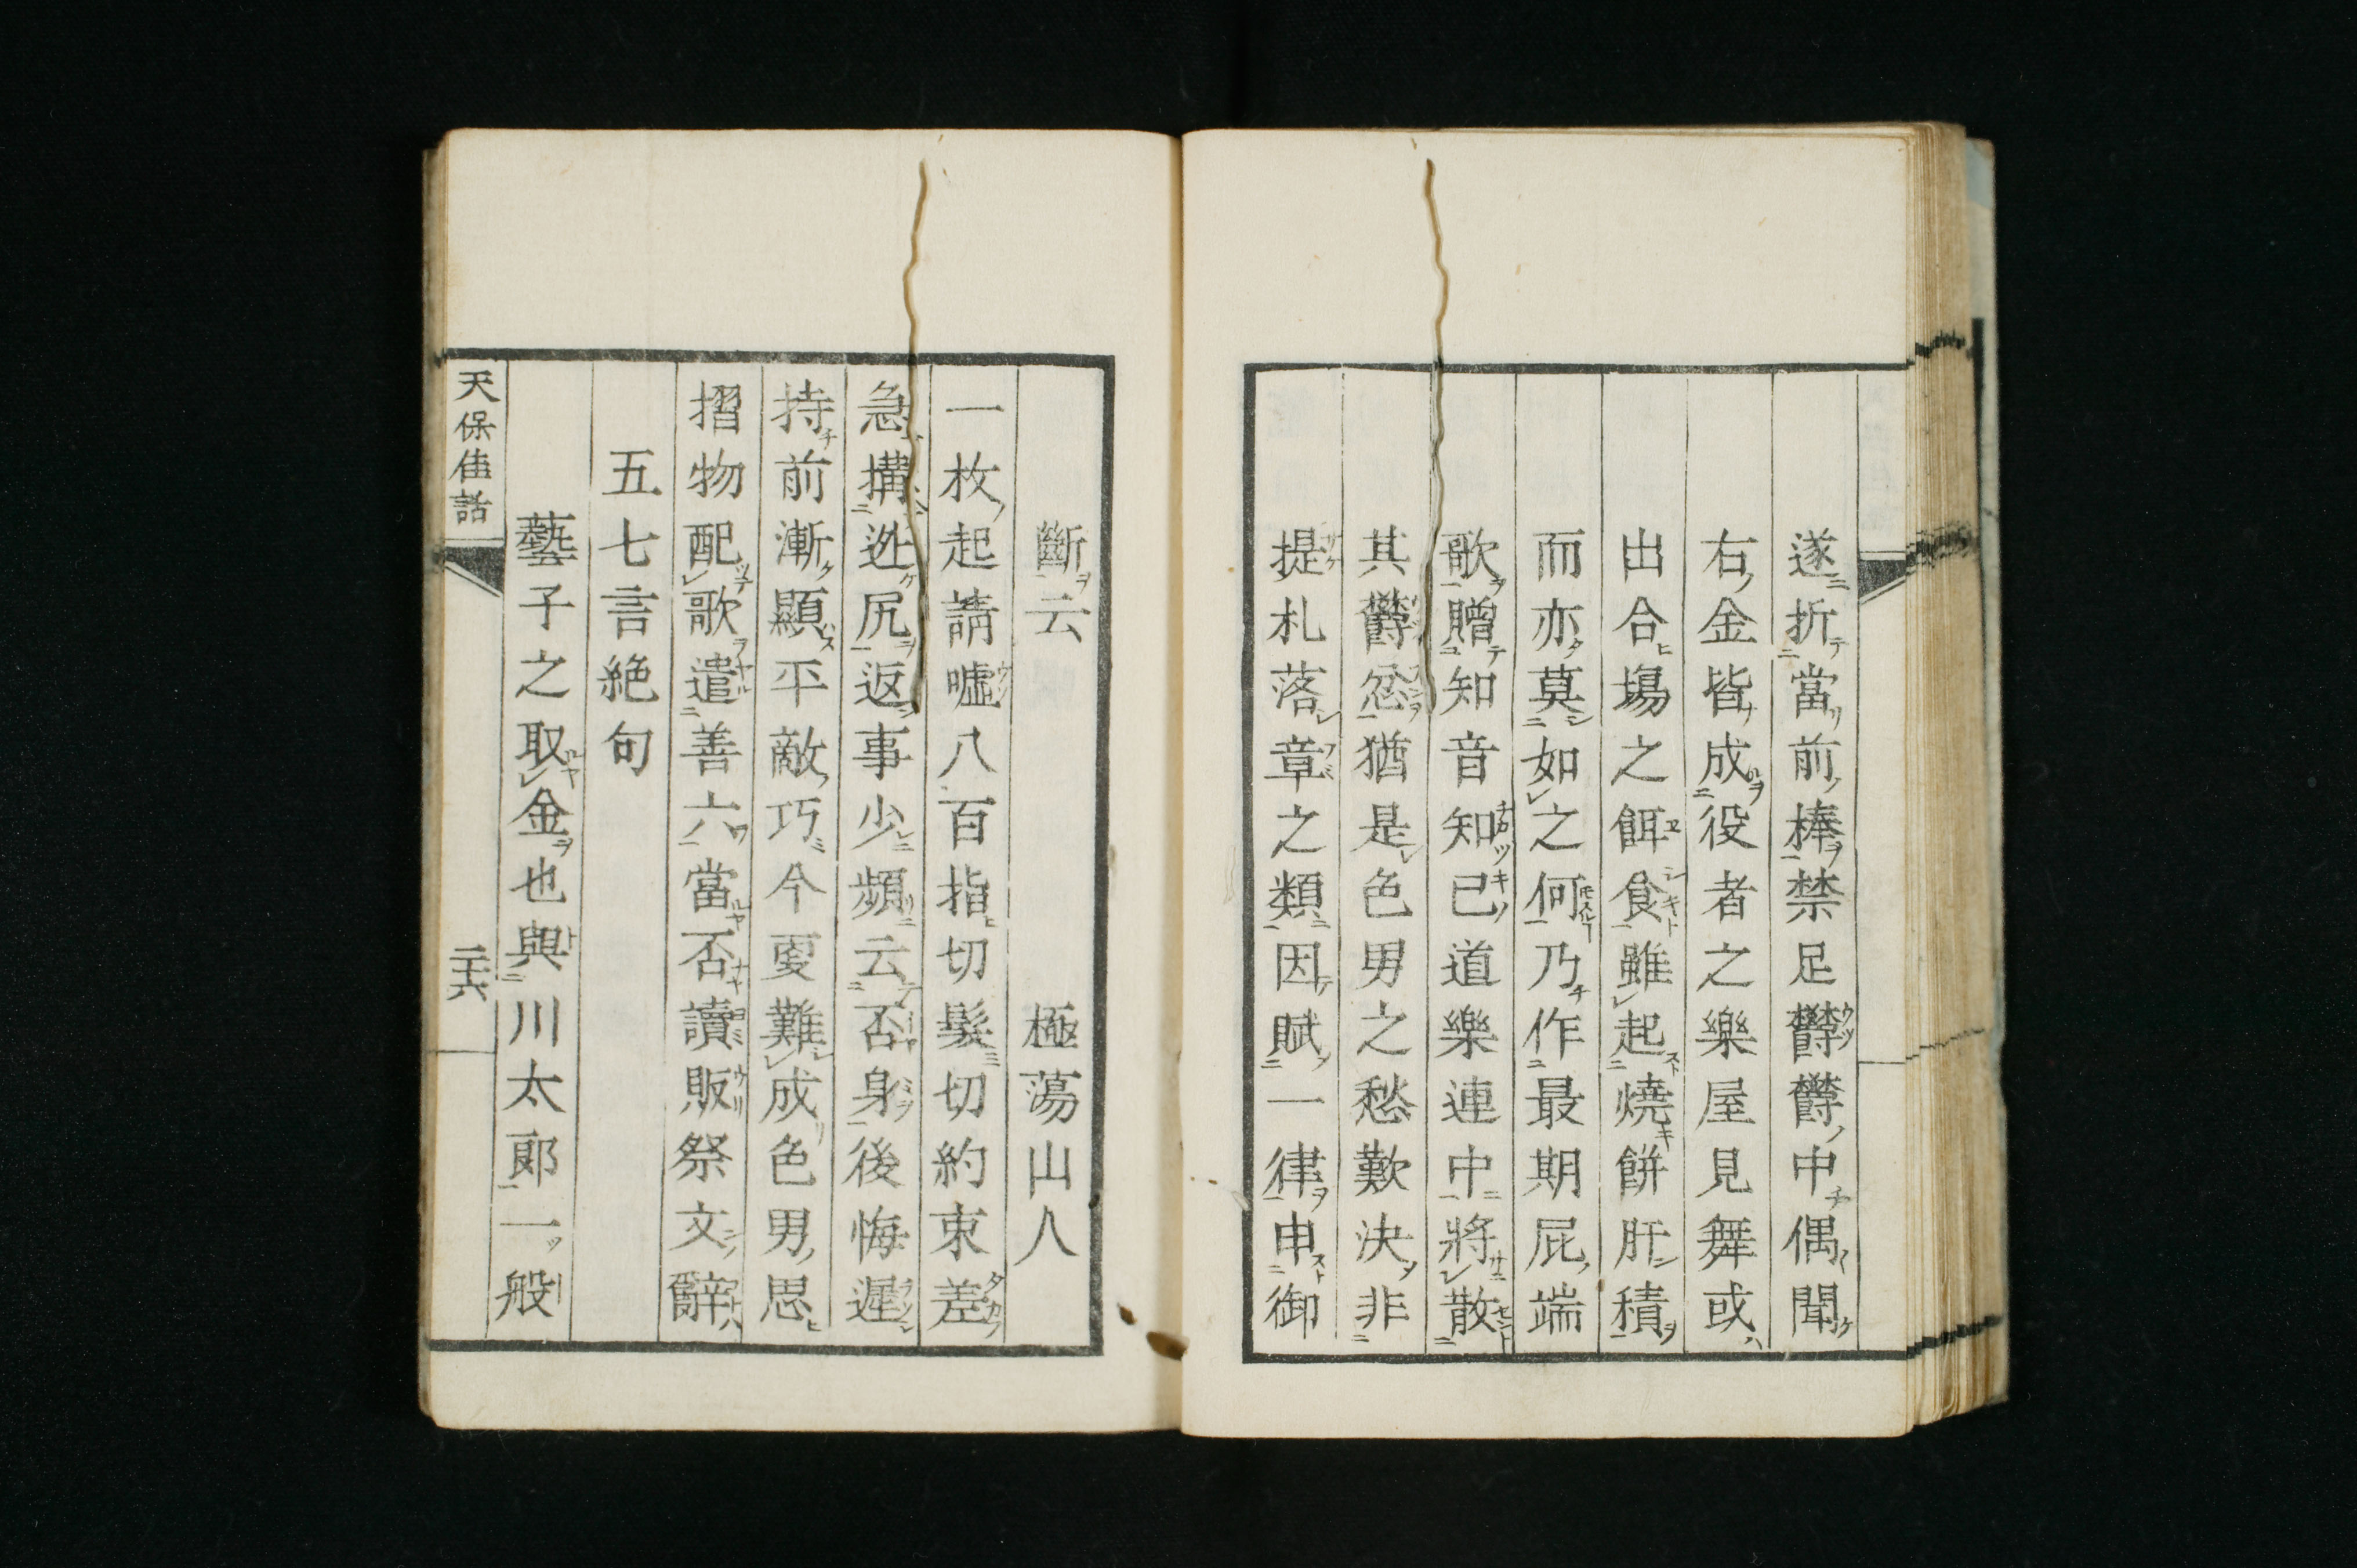 遂折當前棒禁足欝欝中偶聞
右金皆成役者之樂屋見舞或
出合場之餌食雖起燒餅肝積
而亦莫如之何乃作最期屁端
歌贈知音知己道樂連中將散
其欝忿猶是色男之愁歎決非
提札落章之類因賦一律申御
斷云　極蕩山人
一枚起請嘘八百指切髮切約束差
急搆迯尻返事少頻云否身後悔遲
持前漸顯平敵巧今更難成色男思
摺物配歌遣善六當否讀販祭文辭
五七言絶句
藝子之取金也與川太郎一般
天保佳話
二十六